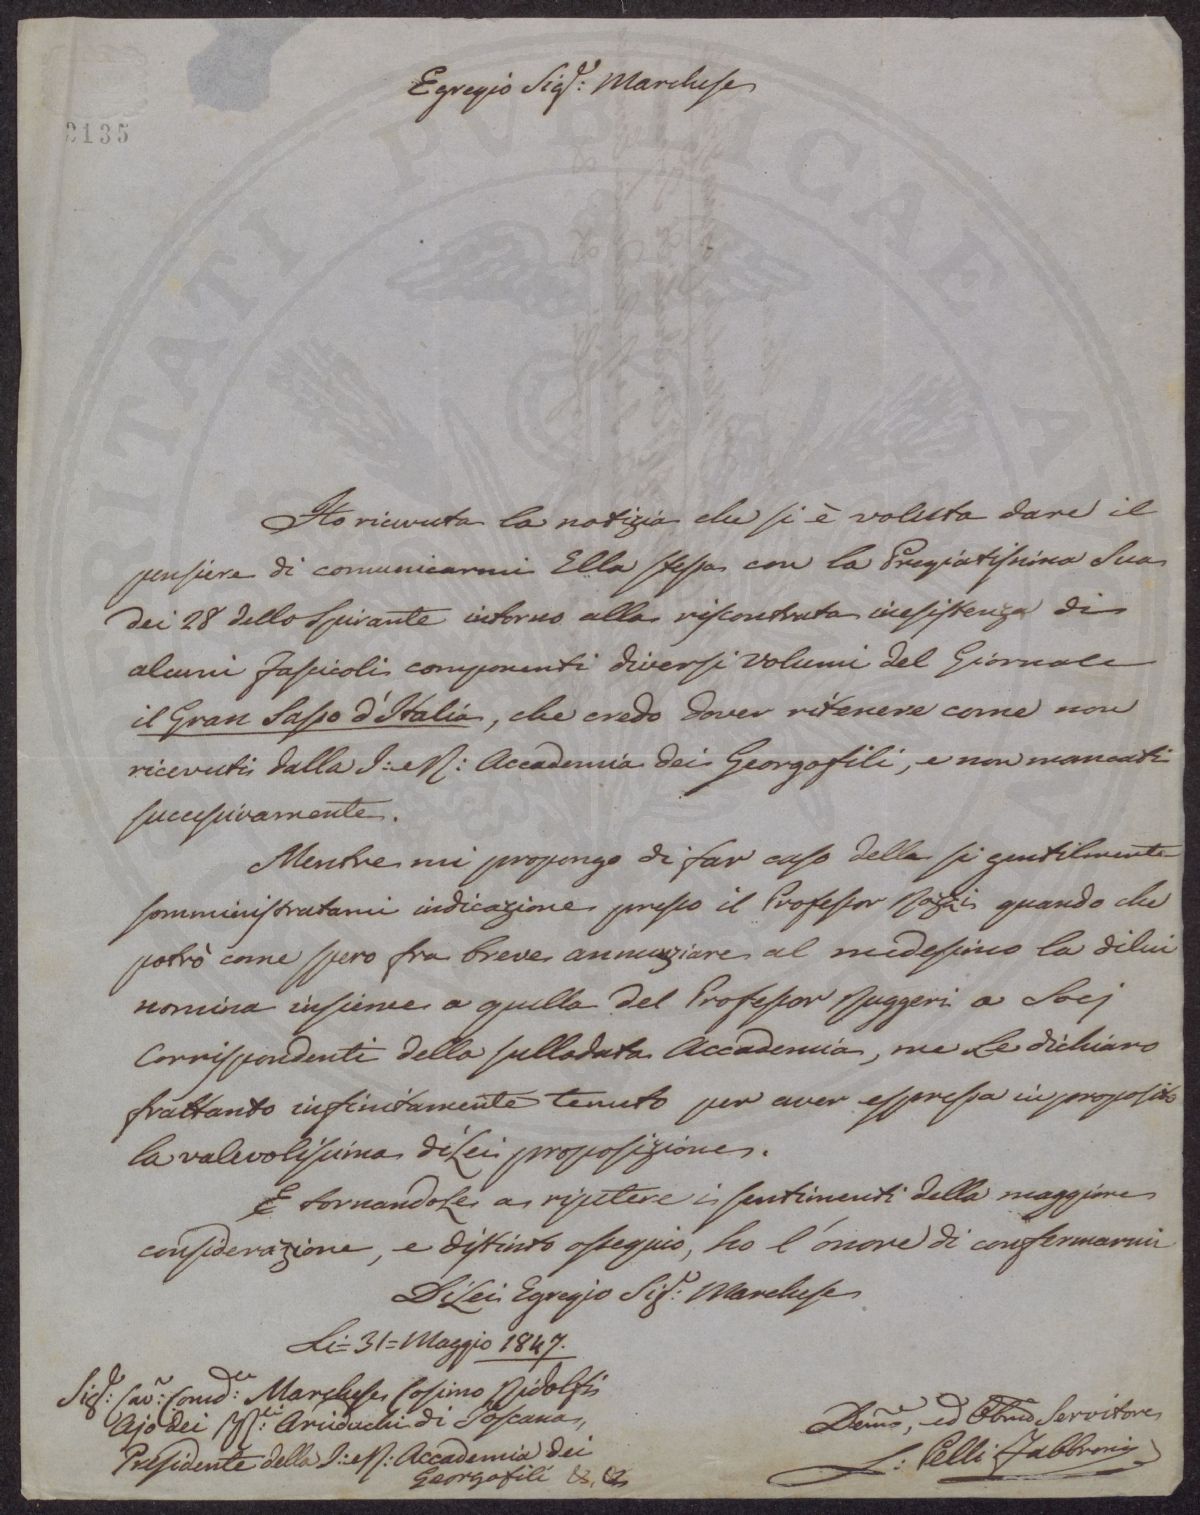 2135
Egregio Sig.r: Marchese
Ho ricevuta la notizia che si è voluta dare il
pensiere di comunicarmi Ella stessa con la Pregiatissima Sua
dei 28 dello Spirante intorno alla riscontrata inesistenza di
alcuni Fascicoli componenti diversi Volumi del Giornale
il Gran Sasso d'Italia, che credo dover ritenere come non
ricevuti dalla I: e R: Accademia dei Georgofili, e non mancati
successivamente.
Mentre mi propongo di far caso della sì gentilmente
somministratami indicazione presso il Professor Rozzi quando che
potrò come spero fra breve annunziare al medesimo la di lui
nomina insieme a quella del Professor Ruggeri a Socj
Corrispondenti della sullodata Accademia, me Le dichiaro
frattanto infinitamente tenuto per aver espressa in proposito
la valevolissima di Lei proposizione.
E tornandoLe a ripetere i sentimenti della maggiore
considerazione, e distinto ossequio, ho l'onore di confermarmi
Di Lei Egregio Sig.r: Marchese
Li = 31 = Maggio 1847.
Sig.r: Cav.r: Comd.re: Marchese Cosimo Ridolfi
Ajo dei RR.li: Arciduchi di Toscana,
Presidente della I: e R: Accademia dei
Georgofili &, &
Dev.mo, ed Obb.mo Servitore
L: Pelli Fabbroni
PUBLICAE